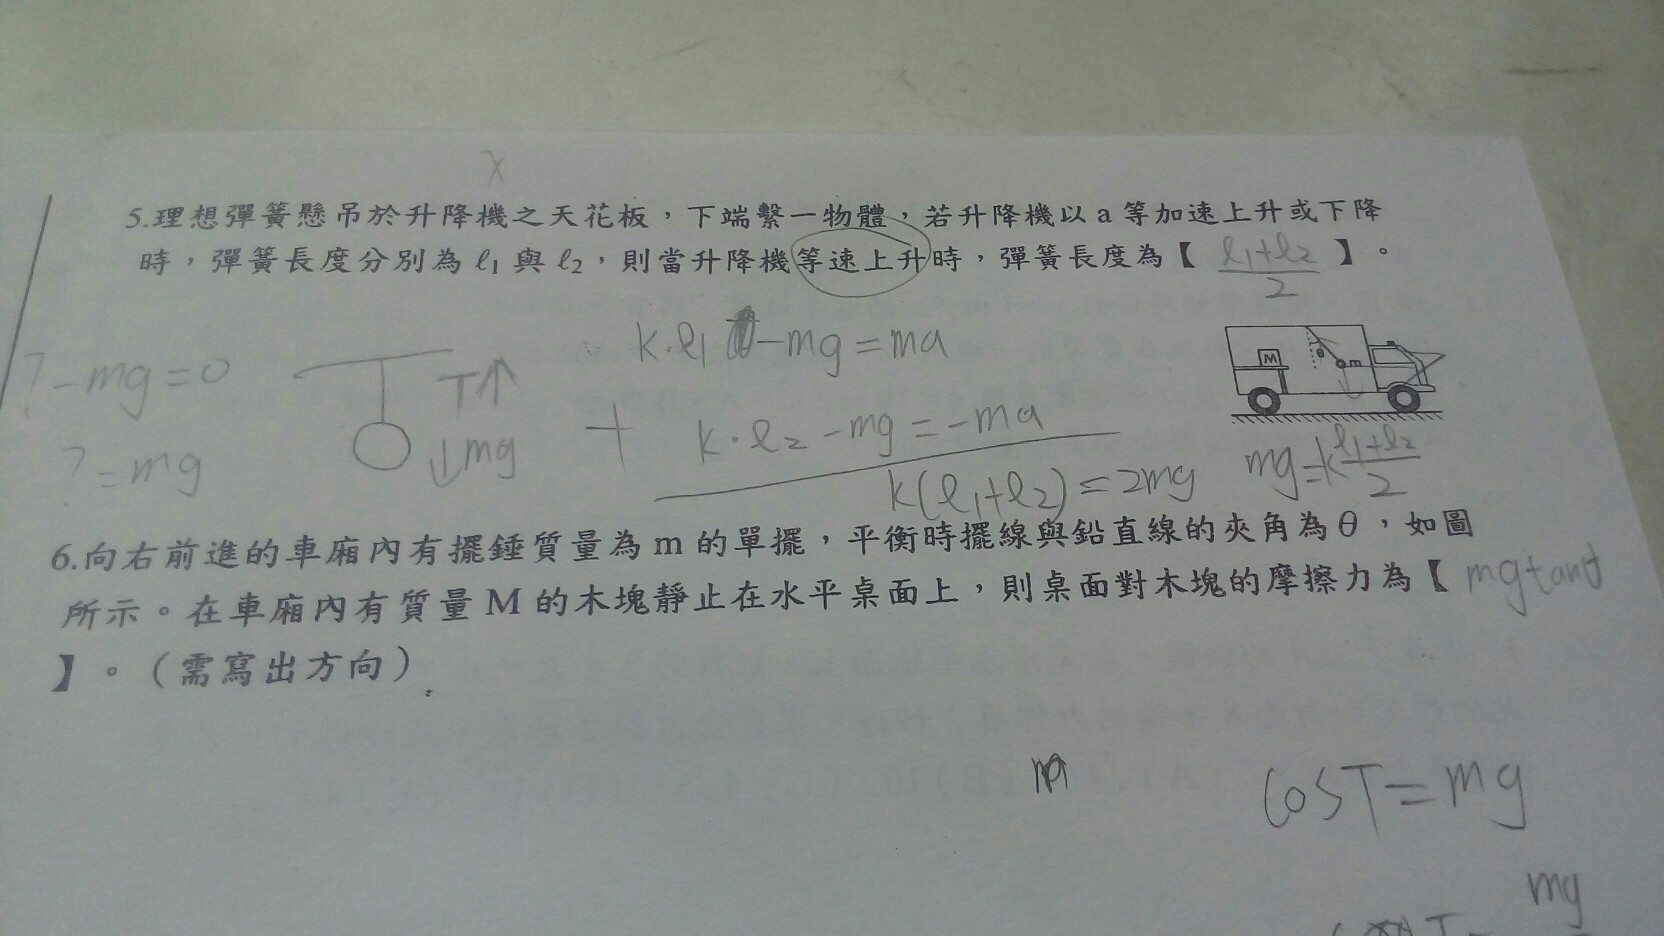 x
5.理想彈簧懸吊於升降機之天花板，下端繫一物體，若升降機以a等加速上升或下降
時，彈簧長度分別為ℓ1與ℓ2，則當升降機等速上升時，彈簧長度為【 ℓ1+ℓ2/2 】。
k·ℓ1 -mg=ma
?-mg=0
T↑
M
θ
m
+ k·ℓ2-mg=-ma
?=mg
↓mg
k(ℓ1+ℓ2)=2mg
mg=k ℓ1+ℓ2/2
6.向右前進的車廂內有擺錘質量為m的單擺，平衡時擺線與鉛直線的夾角為θ，如圖
所示。在車廂內有質量M的木塊靜止在水平桌面上，則桌面對木塊的摩擦力為【 mgtanθ
】。（需寫出方向）
ma
cosT=mg
mg